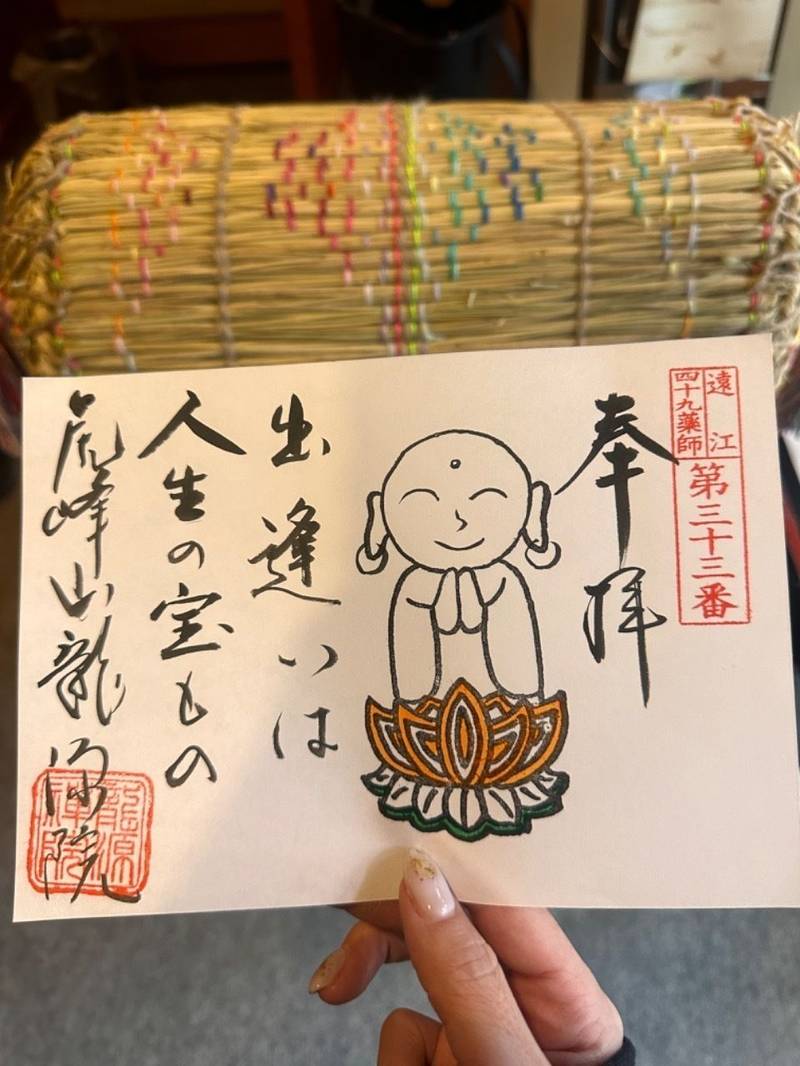 遠江
四十九薬師
第三十三番
奉拝
出逢いは
人生の宝もの
虎峰山龍源院
龍源
禅院